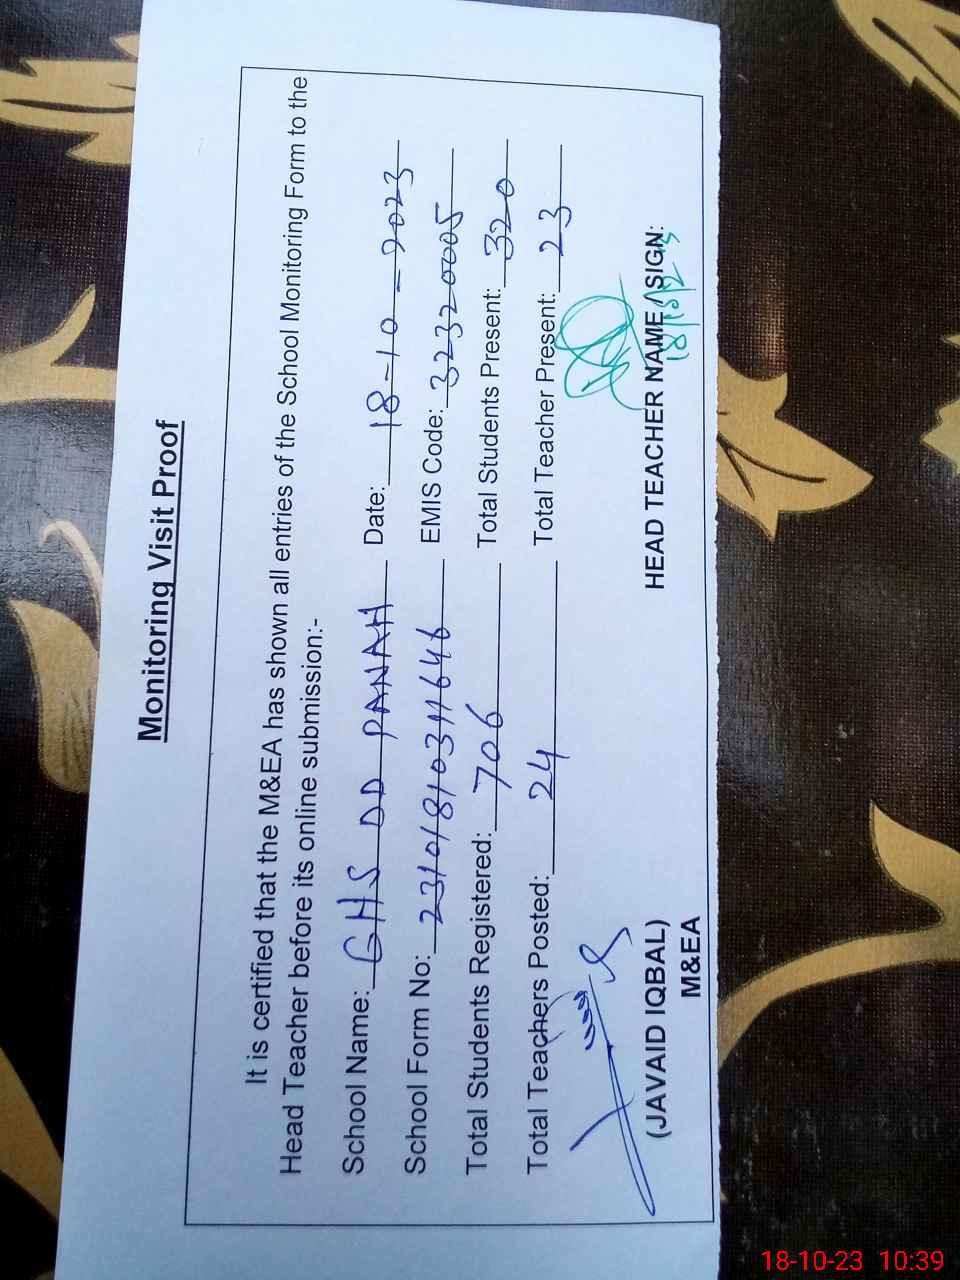 Monitoring Visit Proof
It is certified that the M&EA has shown all entries of the School Monitoring Form to the
Head Teacher before its online submission:-
School Name: GHS DD PANAH Date: 18-10-2023
School Form No: 231018103411646 EMIS Code: 32320005
Total Students Registered: 706 Total Students Present: 320
Total Teachers Posted: 24 Total Teacher Present: 23
(JAVAID IQBAL) HEAD TEACHER NAME / SIGN:
M&EA
18-10-23 10:39